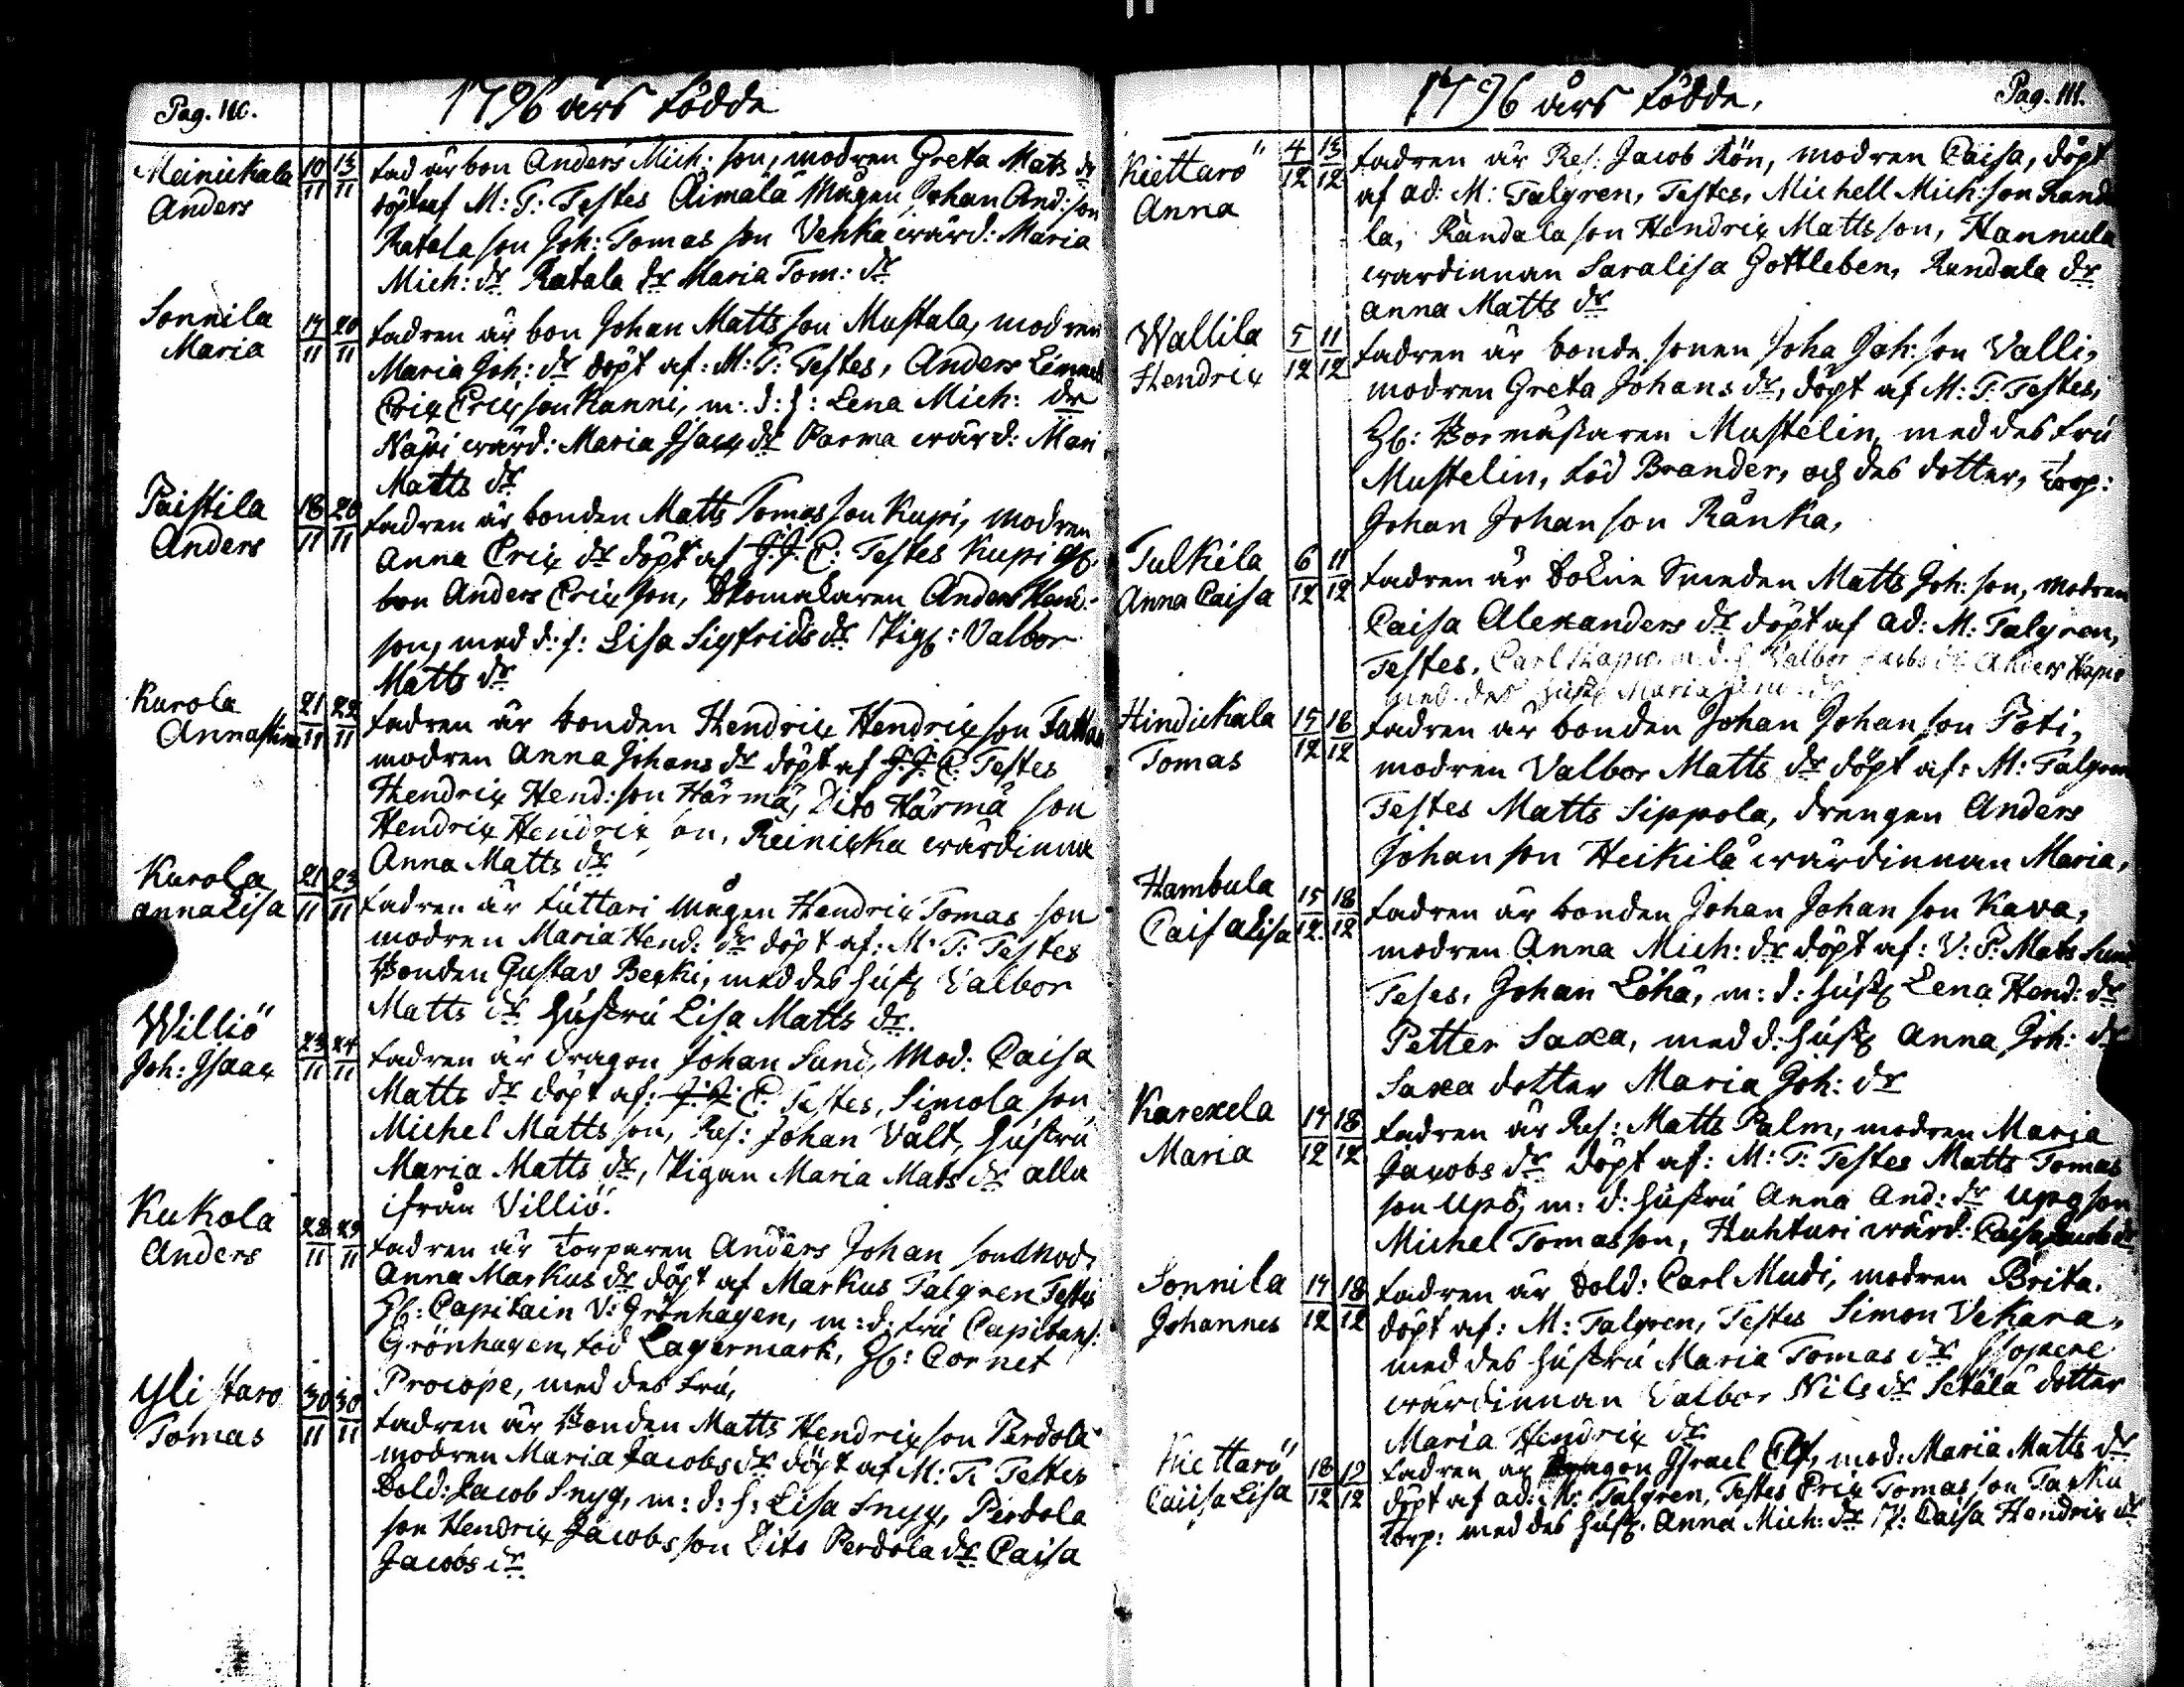 Pag. 110.
1796 års födde
Meinickala 10/11 13/11 fad är bon Anders Mich: son, modren Greta Mats dr
Anders döpt af M: T: Testes Äimälä Mågen Johan And: son
Ratala son Joh: Tomas son Vehka wärd: Maria
Mich: dr Ratala dr Maria Tom: dr
Sonnila 17/11 20/11 fadren är bon Johan Matts son Mustala, modren
Maria Maria Joh: dr döpt af: M: T: Testes, Anders
Eric Ericson Kanni, m: d: h: Lena Mich: dr
Näpi wärd: Maria Isacx dr Parma wärd: Mari
Matts dr
Paistila 18/11 20/11 fadren är bonden Matts Tomas son Kupi, modren
Anders Anna Eric dr döpt af J. J. C: Testes Kupi
bon Anders Eric son, Skomakaren Anders Hend:
son, med d: h: Lisa Sigfrids dr Pig: Valbor
Matts dr
Kurola 21/11 22/11 fadren är bonden Hendric Hendric son
Annastina modren Anna Johans dr döpt af J. J. C: Testes
Hendric Hend: son Härmä, Dito Härmä son
Hendric Hendric son, Reinicka wärdinna
Anna Matts dr
Kurola 21/11 23/11 fadren är Luttari mågen Hendric Tomas son
Anna Lisa modren Maria Hend: dr döpt af: M: T: Testes
Bonden Gustav Berki, med des hust Valbor
Matts dr hustru Lisa Matts dr.
Williö 23/11 24/11 fadren är dragon Johan Sund, Mod: Caisa
Joh: Isaac Matts dr döpt af: J. J. C: Testes, Simola son
Michel Matts son, Res: Johan Vält, hustru
Maria Matts dr, Pigan Maria Mats dr alla
ifrån Villiö.
Kukola 28/11 29/11 fadren är torparen Anders Johan son Mod:
Anders Anna Markus dr döpt af Markus Talgren Testes
H: Capitain V: Grönhagen, m: d: fru Capitans:
Grönhagen, föd Lagermark, H: Cornet
Procope, med des fru,
Ylistaro 30/11 30/11 fadren är Bonden Matts Hendric son Perdola
Tomas modren Maria Jacobs dr döpt af M: T: Testes
Sold: Jacob Snyg, m: d: h: Lisa Snyg, Perdola
son Hendric Jacobs son Dito Perdola dr Caisa
Jacobs dr
1796 års födde,
Pag. 111.
Kiettarö 4/12 13/12 fadren är Res: Jacob Rön, modren Caisa, döpt
Anna af ad: M: Talgren, Testes, Michell Mich: son Randa
la, Randala son Hendric Matts son, Hannula
wärdinnan Saralisa Gottleben, Randala dr
Anna Matts dr
Wallila 5/12 11/12 fadren är bonde sonen Joha Joh: son Valli,
Hendric modren Greta Johans dr, döpt af M: T: Testes,
H: Bormästaren Mustelin, med des fru
Mustelin, föd Brander, och des dotter, torp:
Johan Johan son Ränka,
Tulkila 6/12 11/12 fadren är Sokne Smeden Matts Joh: son, modren
Anna Caisa Caisa Alexanders dr döpt af ad: M: Talgren,
Testes, Carl m: d: h Valbor Anders
med des hust Maria
Hindickala 15/12 18/12 fadren är bonden Johan Johan son Poti,
Tomas modren Valbor Matts dr döpt af: M: Talgren
Testes Matts Sippola, drengen Anders
Johan son Heikilä wärdinnan Maria,
Hambula 15/12 18/12 fadren är bonden Johan Johan son Kava,
Caisa Lisa modren Anna Mich: dr döpt af: V: P: Mats
Teses, Johan Löhä, m: d: hust Lena Hend: dr
Petter Saxa, med d: hust Anna Joh: dr
Saxa dotter Maria Joh: dr
Karexela 17/12 18/12 fadren är Res: Matts Palm, modren Maria
Maria Jacobs dr döpt af: M: T: Testes Matts Tomas
son Upo, m: d: hustru Anna And: dr Upo son
Michel Tomas son, Huhturi wärd: Caisa Jacobs dr
Sonnila 17/12 18/12 fadren är Sold: Carl Mudi, modren Brita.
Johannes döpt af: M: Talgren, Testes Simon Vekara,
med des hustru Maria Tomas dr
wärdinnan Valbor Nils dr Setälä dotter
Maria Hendric dr
Kiettarö 18/12 19/12 fadren är dragon Israel Elf, mod: Maria Matts dr
Caisa Lisa döpt af ad: M: Talgren, Testes Eric Tomas son Tarku
torp: med des hust: Anna Mich: dr P: Caisa Hendric dr